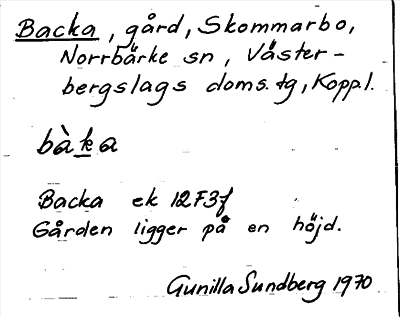 Backa, gård, Skommarbo,
Norrbärke sn, Väster-
bergslags doms. tg, Kopp.l.
bàka
Backa ek 12F3f
Gården ligger på en höjd.
Gunilla Sundberg 1970